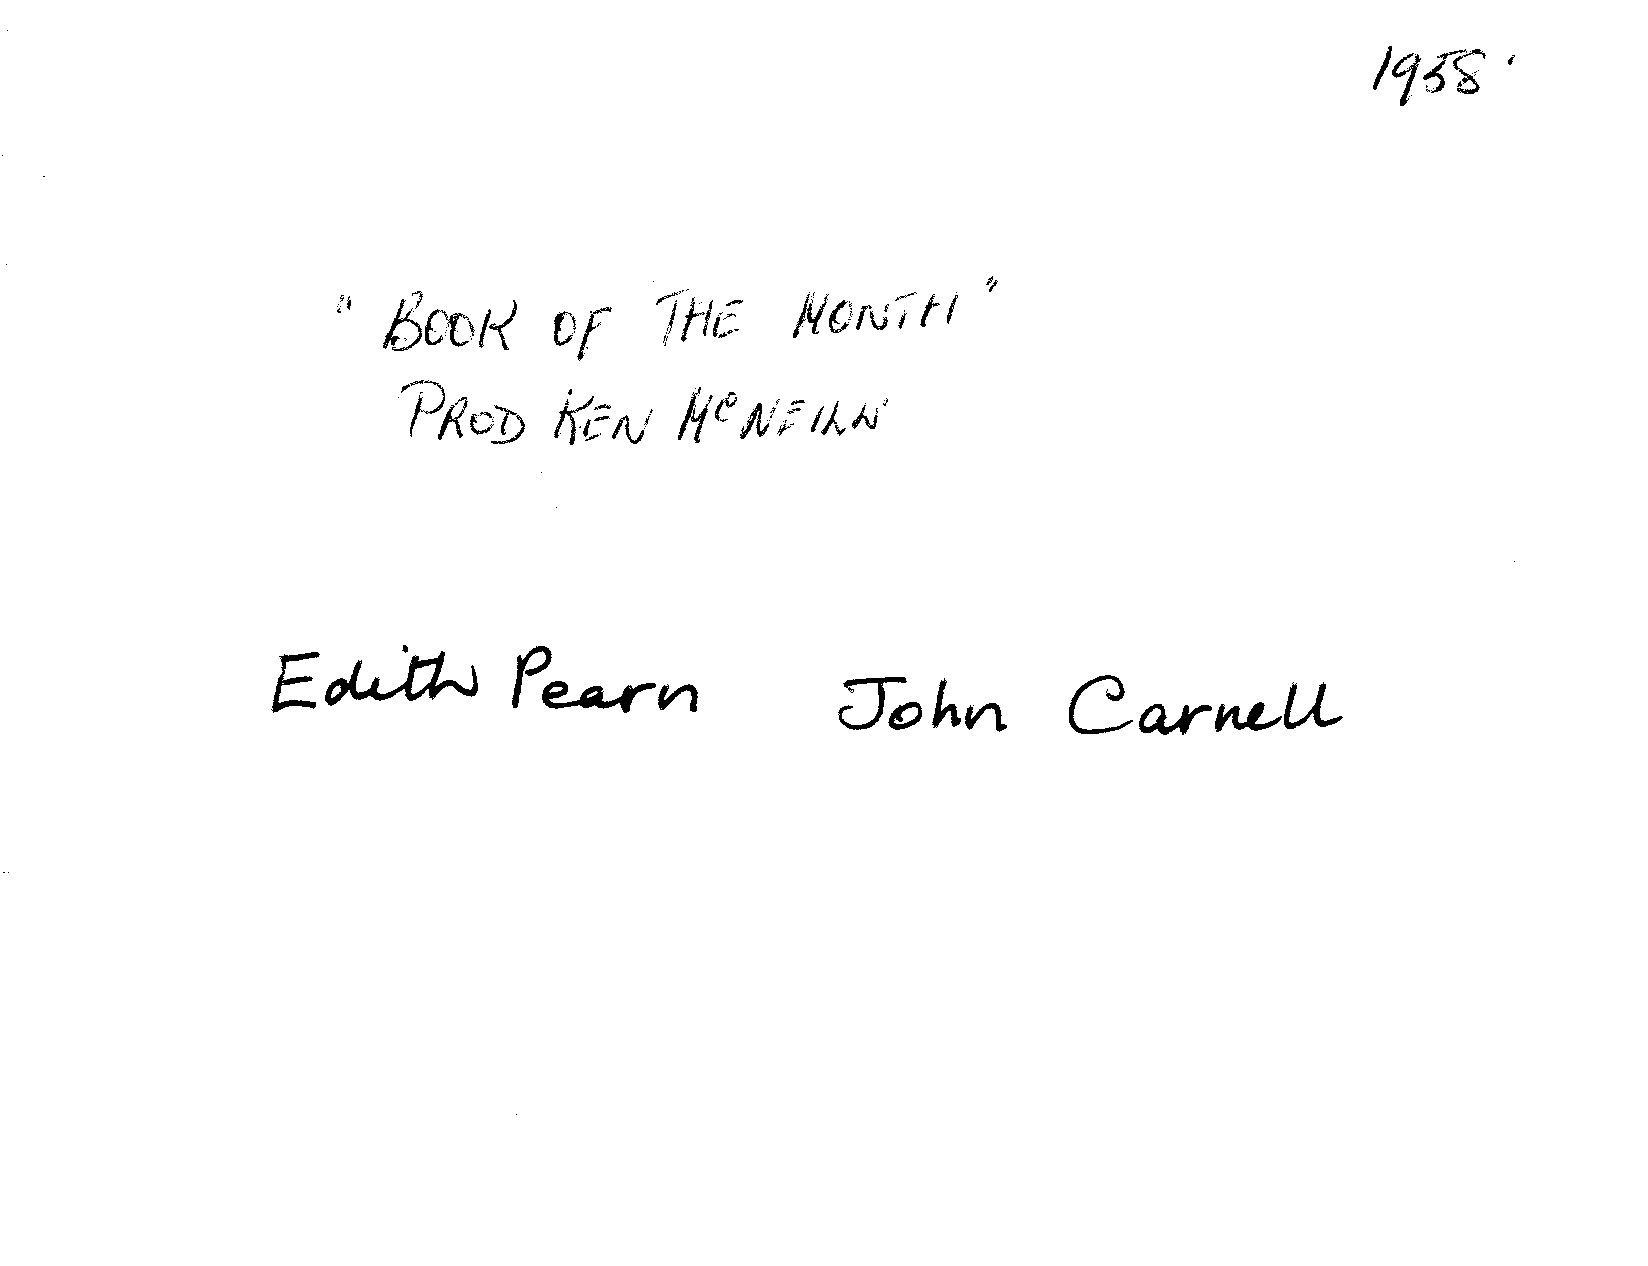 1958.
"BOOK OF THE MONTH"
PROD KEN McNEILL
Edith Pearn John Carnell